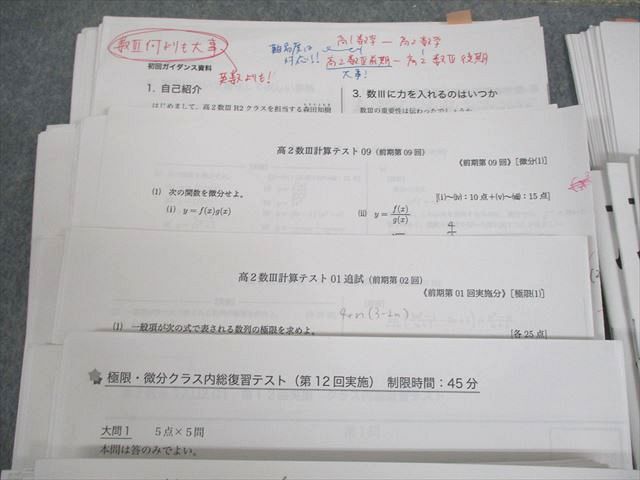 数Ⅲ何よりも大事
英数よりも!
難易度は
対応!!
高1数学 ― 高2数学
高2数Ⅲ前期 ― 高2数Ⅲ後期
大事!
初回ガイダンス資料
1. 自己紹介
はじめまして、高2数Ⅲ R2クラスを担当する森田知樹
3. 数Ⅲに力を入れるのはいつか
数Ⅲの重要性は伝わったでしょうか
高2数Ⅲ計算テスト09（前期第09回）
《前期第09回》[微分(1)]
(1) 次の関数を微分せよ。
[(i)～(iv)：10点＋(v)～(viii)：15点]
(i) y=f(x)g(x)
(ii) y=f(x)/g(x)
4
高2数Ⅲ計算テスト01追試（前期第02回）
《前期第01回実施分》[極限(1)]
4+n(3-2n)
(1) 一般項が次の式で表される数列の極限を求めよ。
[各25点]
極限・微分クラス内総復習テスト（第12回実施） 制限時間：45分
大問1 5点×5問
本問は答のみでよい。